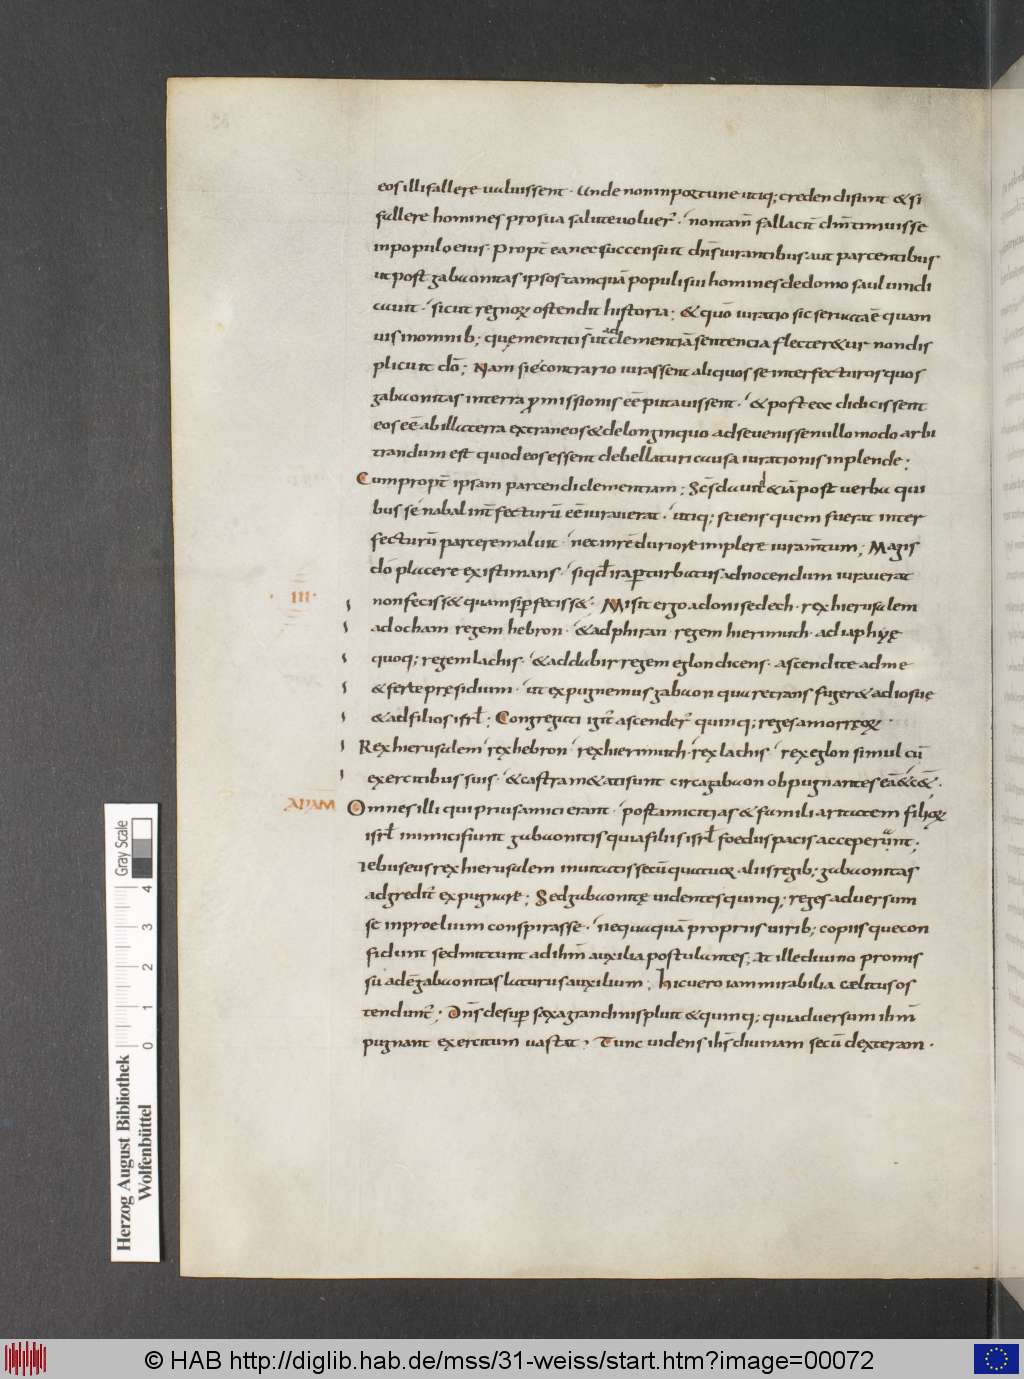 eos illi fallere uoluissent. Unde non inportune utiq; credendi sunt & si
fallere homines pro sua salute uoluer̄. non tam̄ fallacit̄ dm̄ timuisse
in populo eius. Propt̄ ea nec succensuit dn̄s iurantibus aut parcentibus
ut post gabaonitas ipsos tamquā populi sui homines de domo saul uindi
cauit. sicut regnoꝝ ostendit historia; & quō iuratio sic seruata ē quam
uis in omnib; quę mentiti sūt ad clementiā sententia flecter&ur non dis
plicuit dō; Nam si e contrario iurassent aliquos se interfecturos quos
gabaonitas in terra ꝓmissionis eē putauissent. & postea didicissent
eos eē ab illa terra extraneos & de longinquo ad se uenisse nullo modo arbi
trandum est quod eos essent debellaturi causa iurationis inplende;
Cum propt̄ ipsam parcendi clementiam; Sc̄s dauid & iā post uerba qui
bus se nabal int̄fecturū eē iurauerat. utiq; sciens quem fuerat inter
fecturū parcere maluit. nec in re duriore implere iuram̄tum; Magis
dō placere existimans. si qđ ira ꝑturbatus ad nocendum iurauerat
III.
non feciss& quam si ꝑfeciss&. Misit ergo adonisedech. rex hierusalem
ad ocham regem hebron. & ad phiran regem hiermuth. ad iaphię
quoq; regem lachis. & ad dabir regem eglon dicens. ascendite ad me
& ferte pręsidium. ut expugnemus gabaon quare transfuger& ad iosue
& ad filios isrl̄; Congregati igit̄ ascender̄ quinq; reges amorręoꝝ.
Rex hierusalem rex hebron. rex hiermuth. rex lachis. rex eglon simul cū
exercitibus suis. & castram&ati sunt circa gabaon obpugnantes eā & c&̄.
ADAM
Omnes illi qui prius amici erant. post amicitias & familiaritatem filioꝝ
isrl̄ inimici fiunt gabaonitis quia filiis isrl̄ foedus pacis acceperunt;
Iebuseus rex hierusalem inuitatis secū quatuor aliis regib; gabaonitas
adgredit̄ expugnare; Sed gabaonitę uidentes quinq; reges aduersum
se in proelium conspirasse. nequaquā propriis uirib; copiisque con
fidunt sed mittunt ad ihm̄ auxilia postulantes; At ille diuino promis
su adest gabaonitas laturus auxilium; Hic uero iam mirabilia cęlitus os
tendunt̄. Dn̄s desuꝑ saxa grandinis pluit & quinq; qui aduersum ihm̄
pugnant exercitum uastat; Tunc uidens ihs̄ diuinam secū dexteram.
Gray Scale
0 1 2 3 4
Herzog August Bibliothek
Wolfenbüttel
© HAB http://diglib.hab.de/mss/31-weiss/start.htm?image=00072